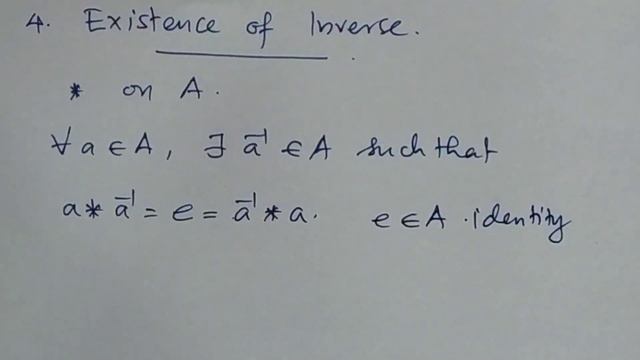 4. Existence of Inverse.
* on A.
∀ a ∈ A, ∃ a⁻¹ ∈ A such that
a * a⁻¹ = e = a⁻¹ * a. e ∈ A . identity